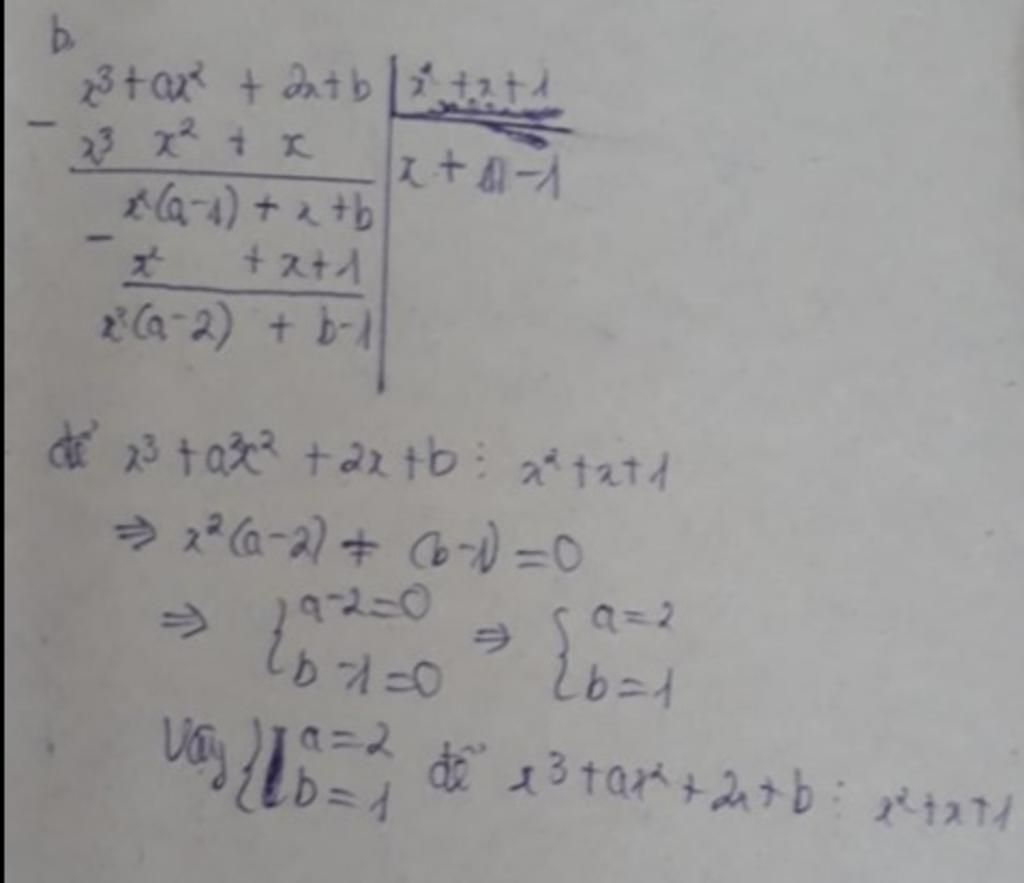 b.
x³ + ax² + 2x + b | x² + x + 1
- x³ x² + x | x + a - 1
x²(a-1) + x + b
- x² + x + 1
x²(a-2) + b-1
để x³ + ax² + 2x + b ⋮ x² + x + 1
⇒ x²(a-2) + (b-1) = 0
⇒ { a-2=0 ⇒ { a=2
b-1=0 b=1
Vậy { a=2 để x³ + ax² + 2x + b ⋮ x² + x + 1
b=1